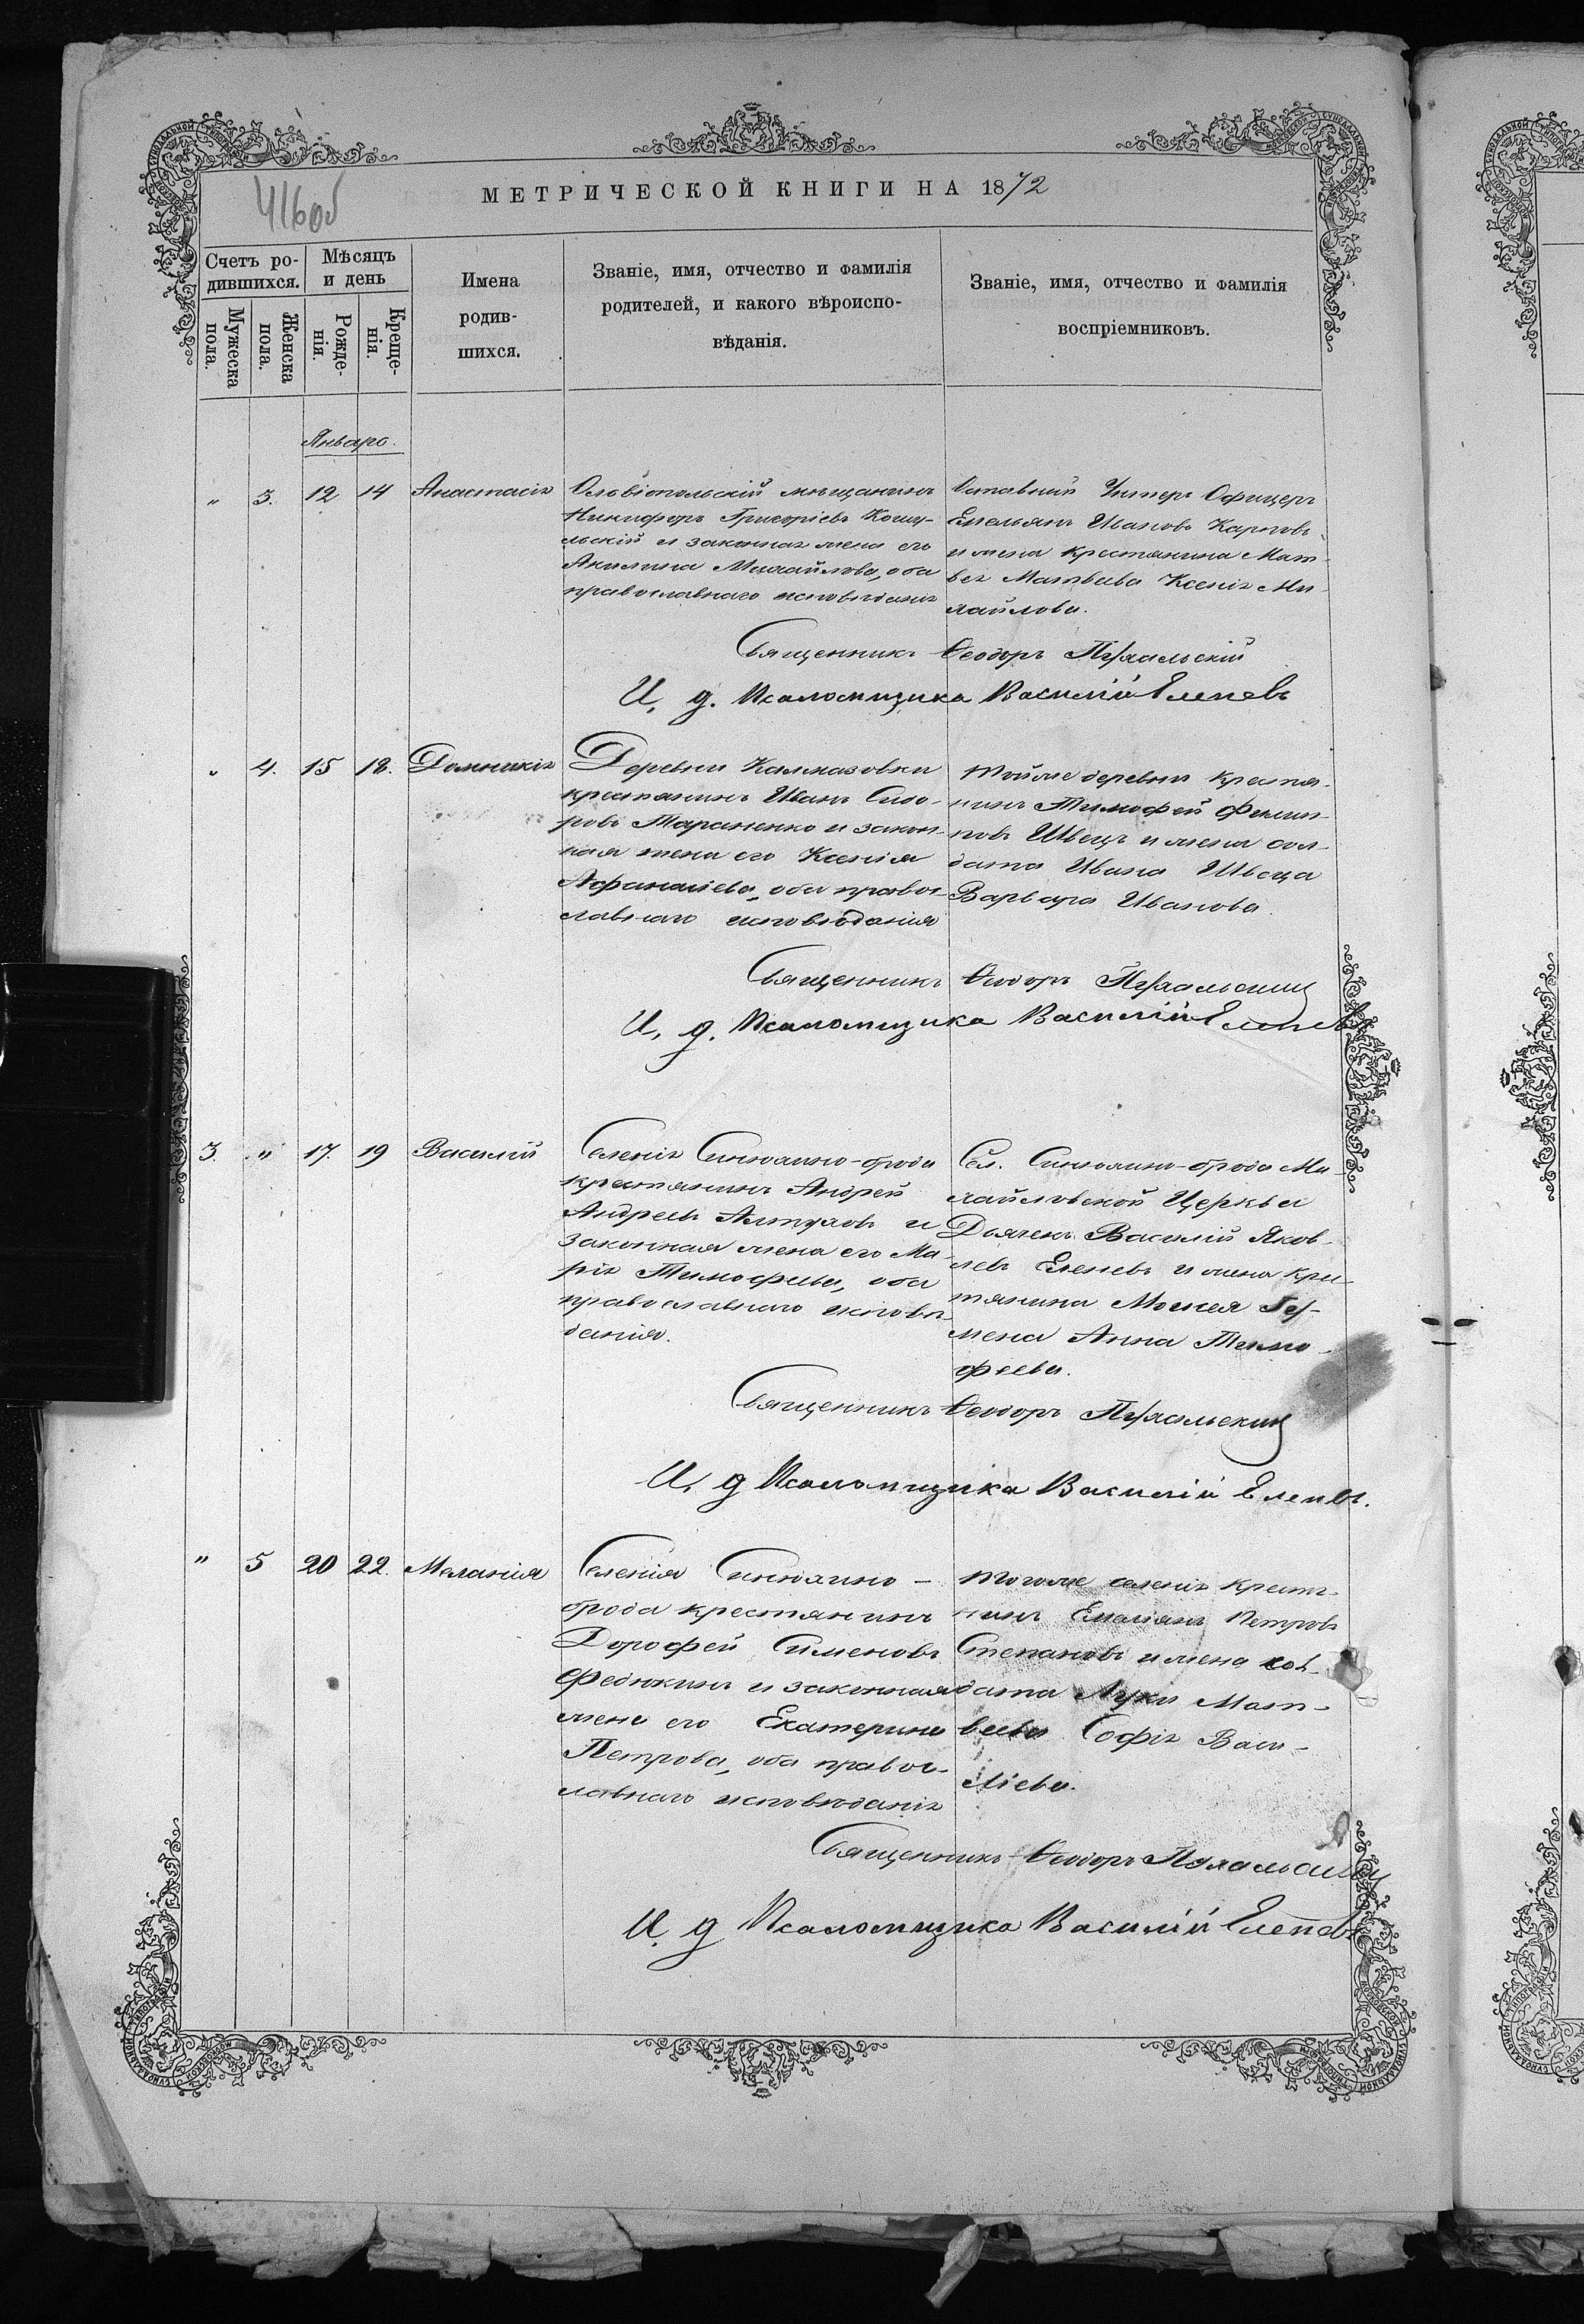 416об
МЕТРИЧЕСКОЙ КНИГИ НА 1872
Счетъ ро-
дившихся.
Мужеска
пола.
Женска
пола.
Мѣсяцъ
и день
Рожде-
нія.
Креще-
нія.
Имена
родив-
шихся.
Званіе, имя, отчество и фамилія
родителей, и какого вѣроиспо-
вѣданія.
Званіе, имя, отчество и фамилія
воспріемниковъ.
Январ.
„ 3. 12 14 Анастасія
Ольвіопольскій мѣщанинъ
Никифоръ Григоріевъ
и законная жена его
Акилина Михайлова, оба
православнаго исповѣданія
Отставный Унтеръ Офицеръ
Емельянъ Ивановъ Карповъ
и жена крестянина Мат-
вея Матвѣева Ксенія Ми-
хайлова.
Священникъ Ѳеодоръ
И, д. Псаломщика Василій Еленевъ
„ 4. 15 18. Домникія
Деревни Калмазовки
крестянинъ Иванъ Сидо-
ровъ Тараненко и закон-
ная жена его Ксенія
Афанасіева, оба правос-
лавнаго исповѣданія
Тойже деревни крестя-
нинъ Тимофей Филип-
повъ Швецъ и жена сол-
дата Ивана Швеца
Варвара Иванова.
Священникъ Ѳеодоръ
И, д. Псаломщика Василій Еленевъ
3. „ 17. 19 Василій
Селенія Синюхино-брода
крестянинъ Андрей
Андреевъ Алтуховъ и
законная жена его Ма-
рія Тимофеева, оба
православнаго исповѣ-
данія.
Сел. Синюхино-брода Ми-
хайловской Церкви
Дьячекъ Василій Яков-
левъ Еленевъ и жена крес-
тянина Моисея Гур-
мена Анна Тимо-
фѣева.
Священникъ Ѳеодоръ
И, д Псаломщика Василій Еленевъ.
„ 5 20 22. Меланія
Селенія Синюхино-
брода крестянинъ
Дорофей Сименовъ
Федюкинъ и законная
жена его Екатерина
Петрова, оба правос-
лавнаго исповѣданія
Тогоже селенія крестя-
нинъ Емеліянъ Петровъ
Степановъ и жена сол-
дата Луки Мат-
веева Софія Васи-
ліева.
Священникъ Ѳеодоръ
И, д Псаломщика Василій Еленевъ